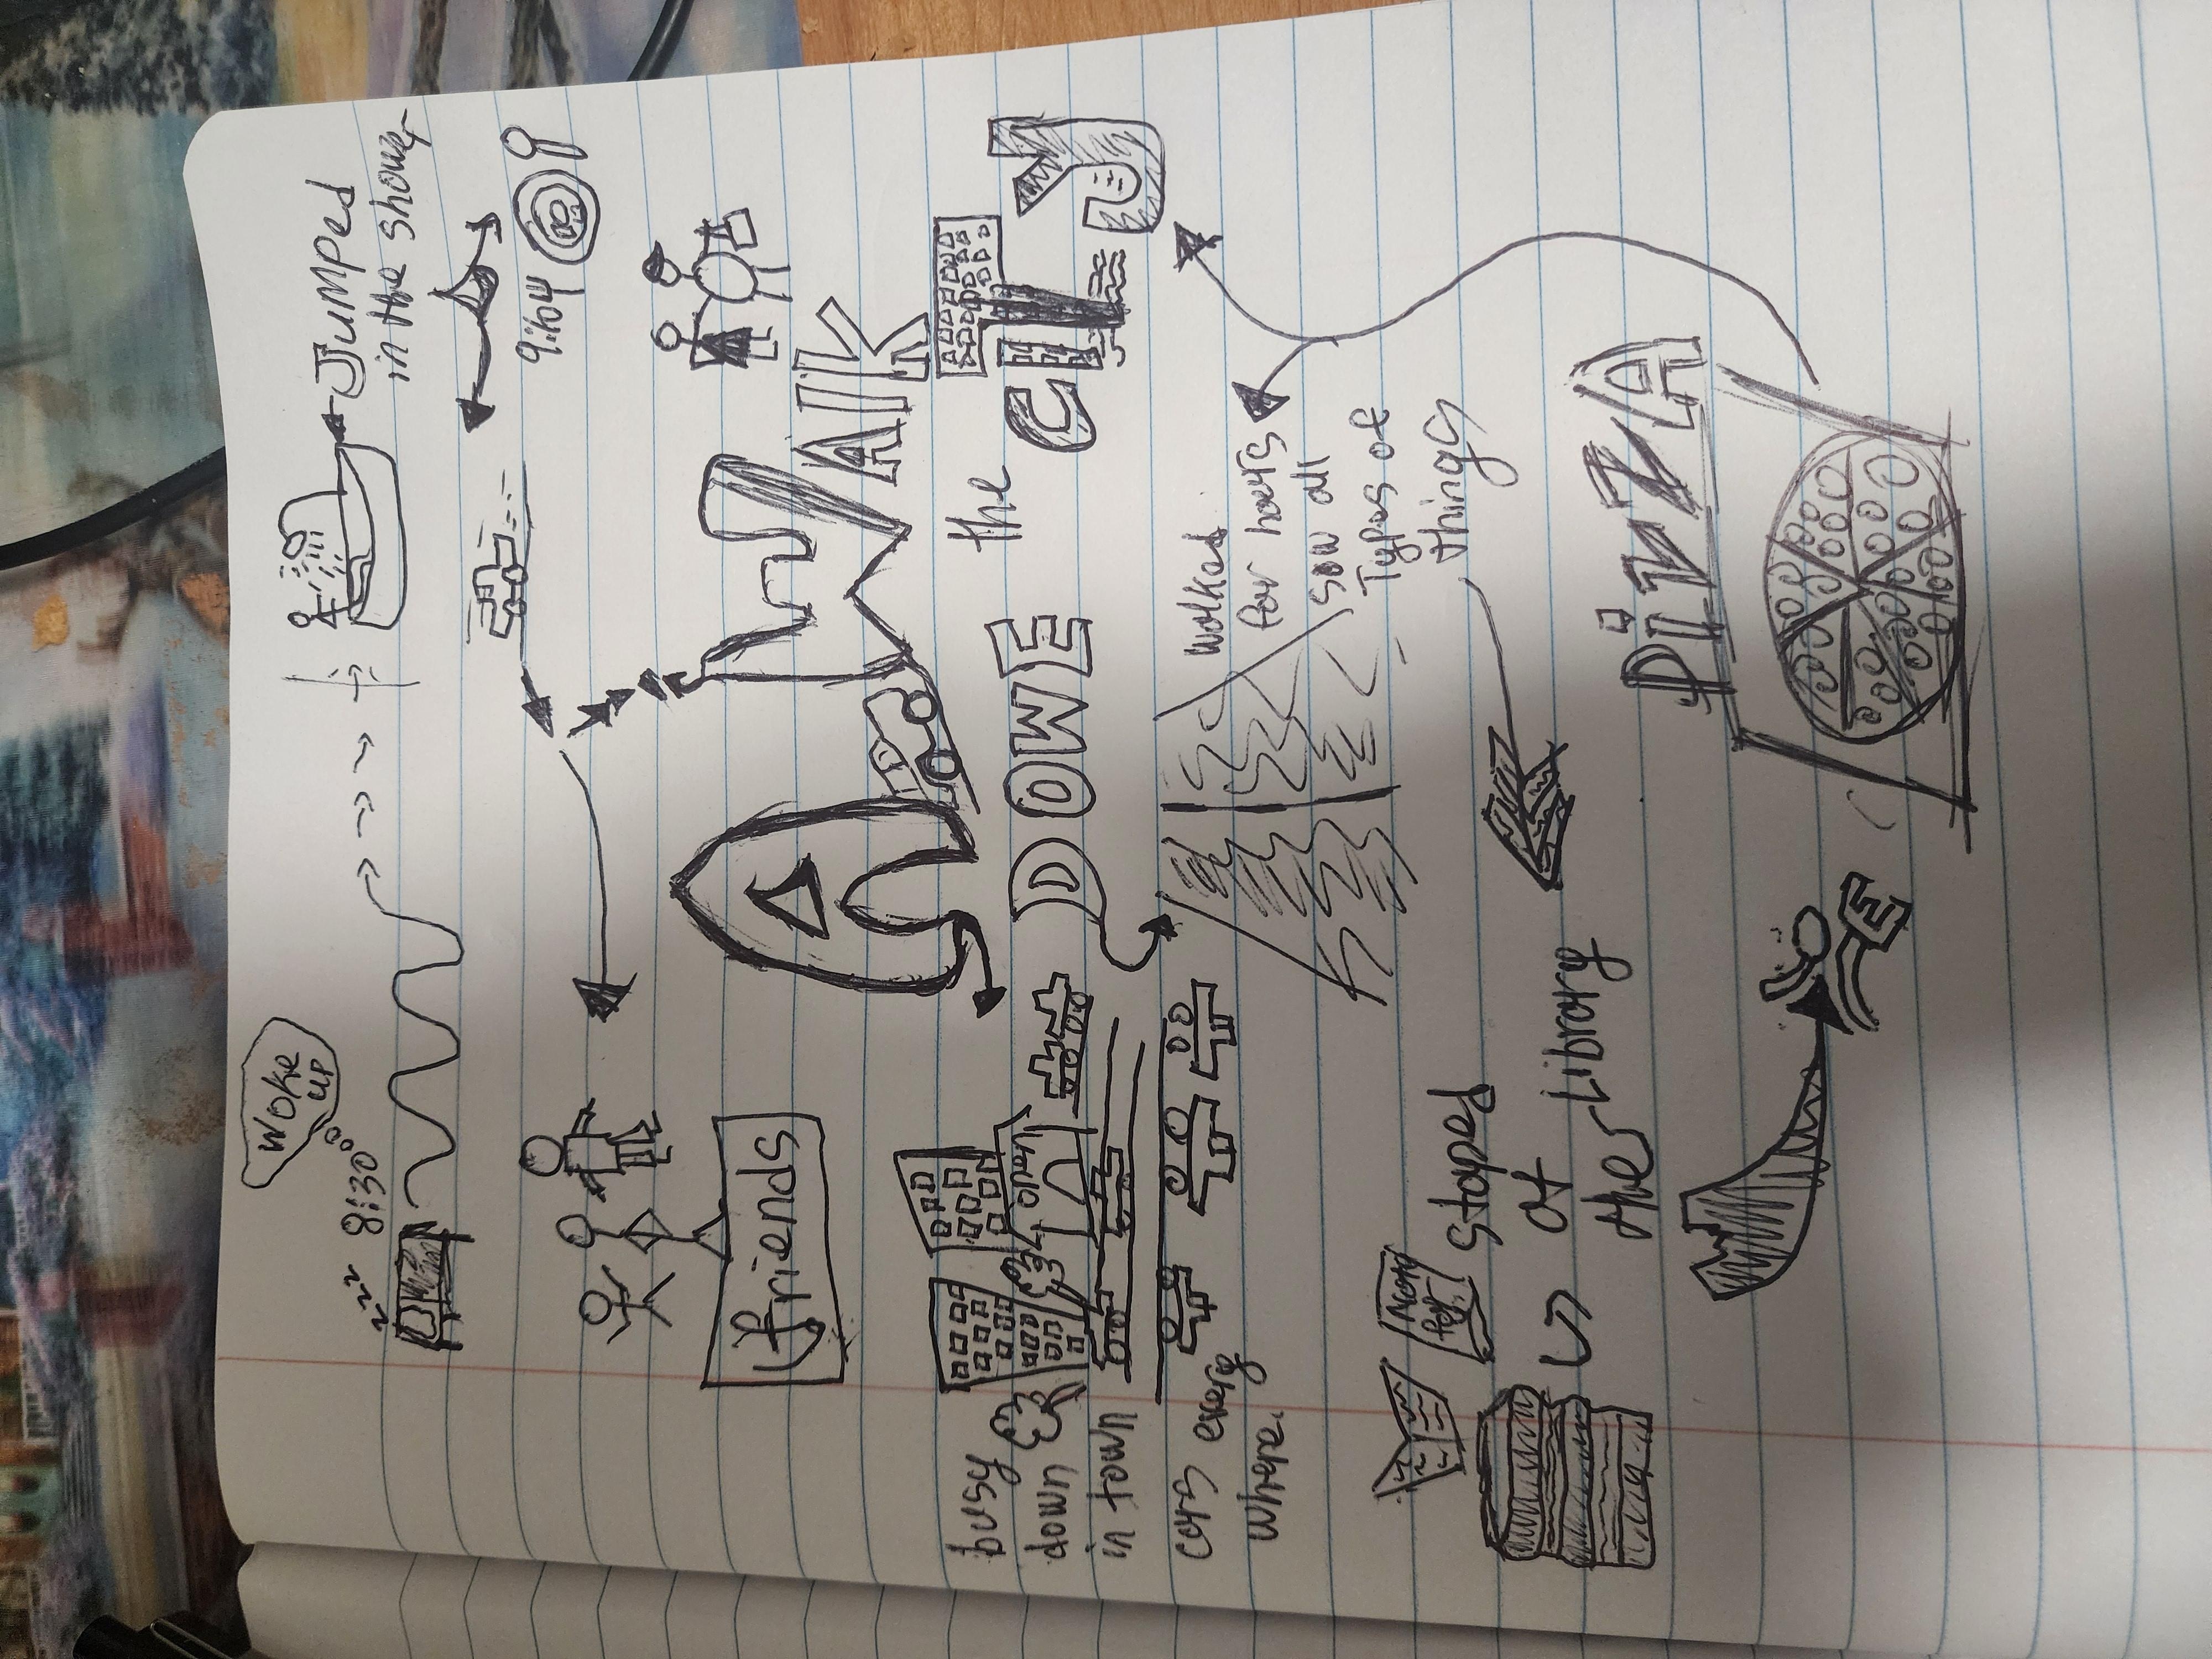 Woke
up
zzz 8:30
Jumped
in the shower
9:04
friends
A WAlK
DOWE the CITY
busy
down
in town
open
cars every
where.
walked
for hours
saw all
Types of
things
stoped
at
the Library
PizzA